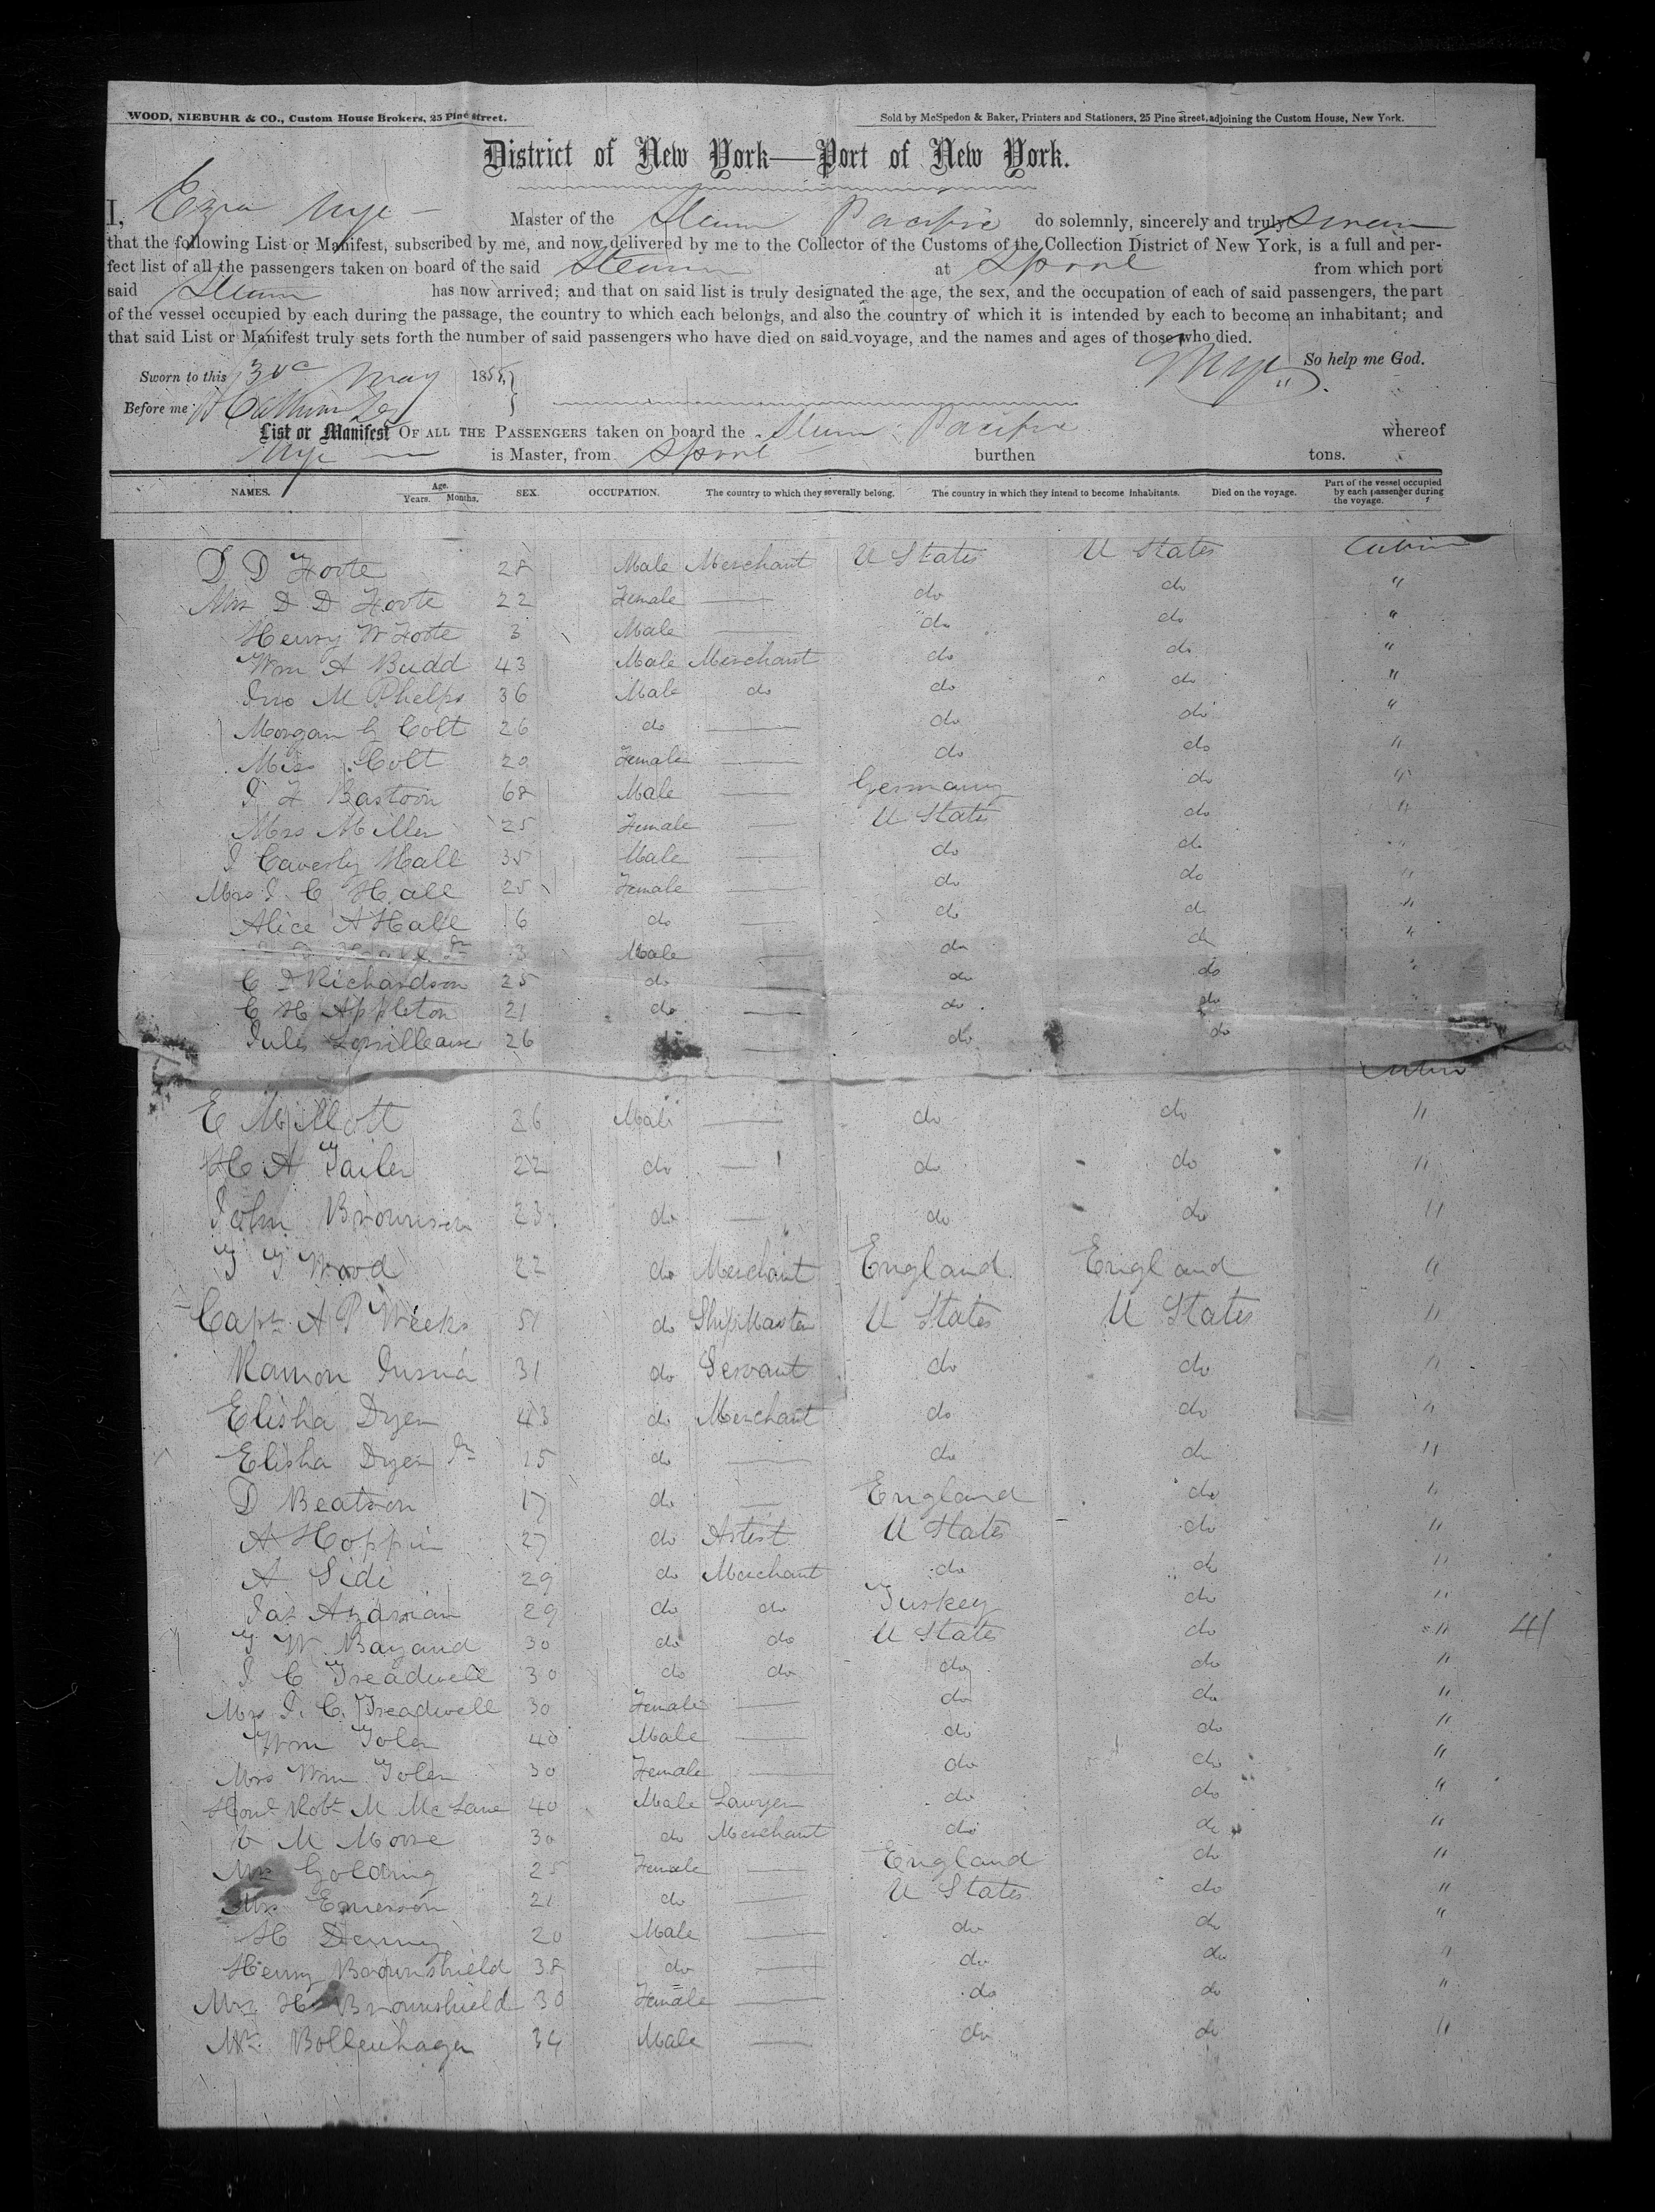 WOOD, NIEBUHR & CO., Custom House Brokers, 25 Pine street. Sold by McSpedon & Baker, Printers and Stationers, 25 Pine street, adjoining the Custom House, New York.
District of New York—Port of New York.
I, Ezra Nye – Master of the Steam Pacific do solemnly, sincerely and truly swear
that the following List or Manifest, subscribed by me, and now delivered by me to the Collector of the Customs of the Collection District of New York, is a full and per-
fect list of all the passengers taken on board of the said Steam at Lpool from which port
said Steam has now arrived; and that on said list is truly designated the age, the sex, and the occupation of each of said passengers, the part
of the vessel occupied by each during the passage, the country to which each belongs, and also the country of which it is intended by each to become an inhabitant; and
that said List or Manifest truly sets forth the number of said passengers who have died on said voyage, and the names and ages of those who died.
So help me God.
Sworn to this 30 May 1855 Nye
Before me
List or Manifest OF ALL THE PASSENGERS taken on board the Steam Pacific whereof
Nye is Master, from Lpool burthen tons.
NAMES. Age. Years. Months. SEX. OCCUPATION. The country to which they severally belong. The country in which they intend to become inhabitants. Died on the voyage. Part of the vessel occupied by each passenger during the voyage.
D D Foote 28 Male Merchant U States U States Cabin
Mrs D D Foote 22 Female — do do "
Henry W Foote 3 Male — do do "
Wm A Budd 43 Male Merchant do do "
Jno M Phelps 36 Male do do do "
Morgan G Colt 26 do — do do "
Miss Colt 20 Female — do do "
J F Bastoin 68 Male — Germany do "
Mrs Miller 25 Female — U States do "
J Caverly Hall 35 Male — do do "
Mrs J C Hall 25 Female — do do "
Alice A Hall 6 do — do do "
Hall Jr 3 Male — do do "
C D Richardson 25 do — do do "
C H Appleton 21 do — do do "
Jules 26 — do do
Cabin
E Millott 26 Male — do do "
H A Tailer 22 do — do do "
John Brownson 23 do — do do "
T T Wood 22 do Merchant England England "
Capt A P Weeks 51 do Ship Master U States U States "
Ramon 31 do Servant do do "
Elisha Dyer 43 do Merchant do do "
Elisha Dyer Jr 15 do — do do "
D Beatson 17 do — England do "
A Hoppin 27 do Artist U States do "
A Side 29 do Merchant do do "
Jas Azarian 29 do do Turkey do "
T W Bayand 30 do do U States do " 41
J C Treadwell 30 do do do do "
Mrs J. C. Treadwell 30 Female — do do "
Wm Toler 40 Male — do do "
Mrs Wm Toler 30 Female — do do "
Honl Robt M McLane 40 Male Lawyer do do "
M Morse 30 do Merchant do do "
Mrs Golding 25 Female — England do "
Mrs Emerson 21 do — U States do "
H Denny 20 Male — do do "
Henry Brownshield 38 do — do do "
Mrs H Brownshield 30 Female — do do "
Mr. Bollenhagen 34 Male — do do "